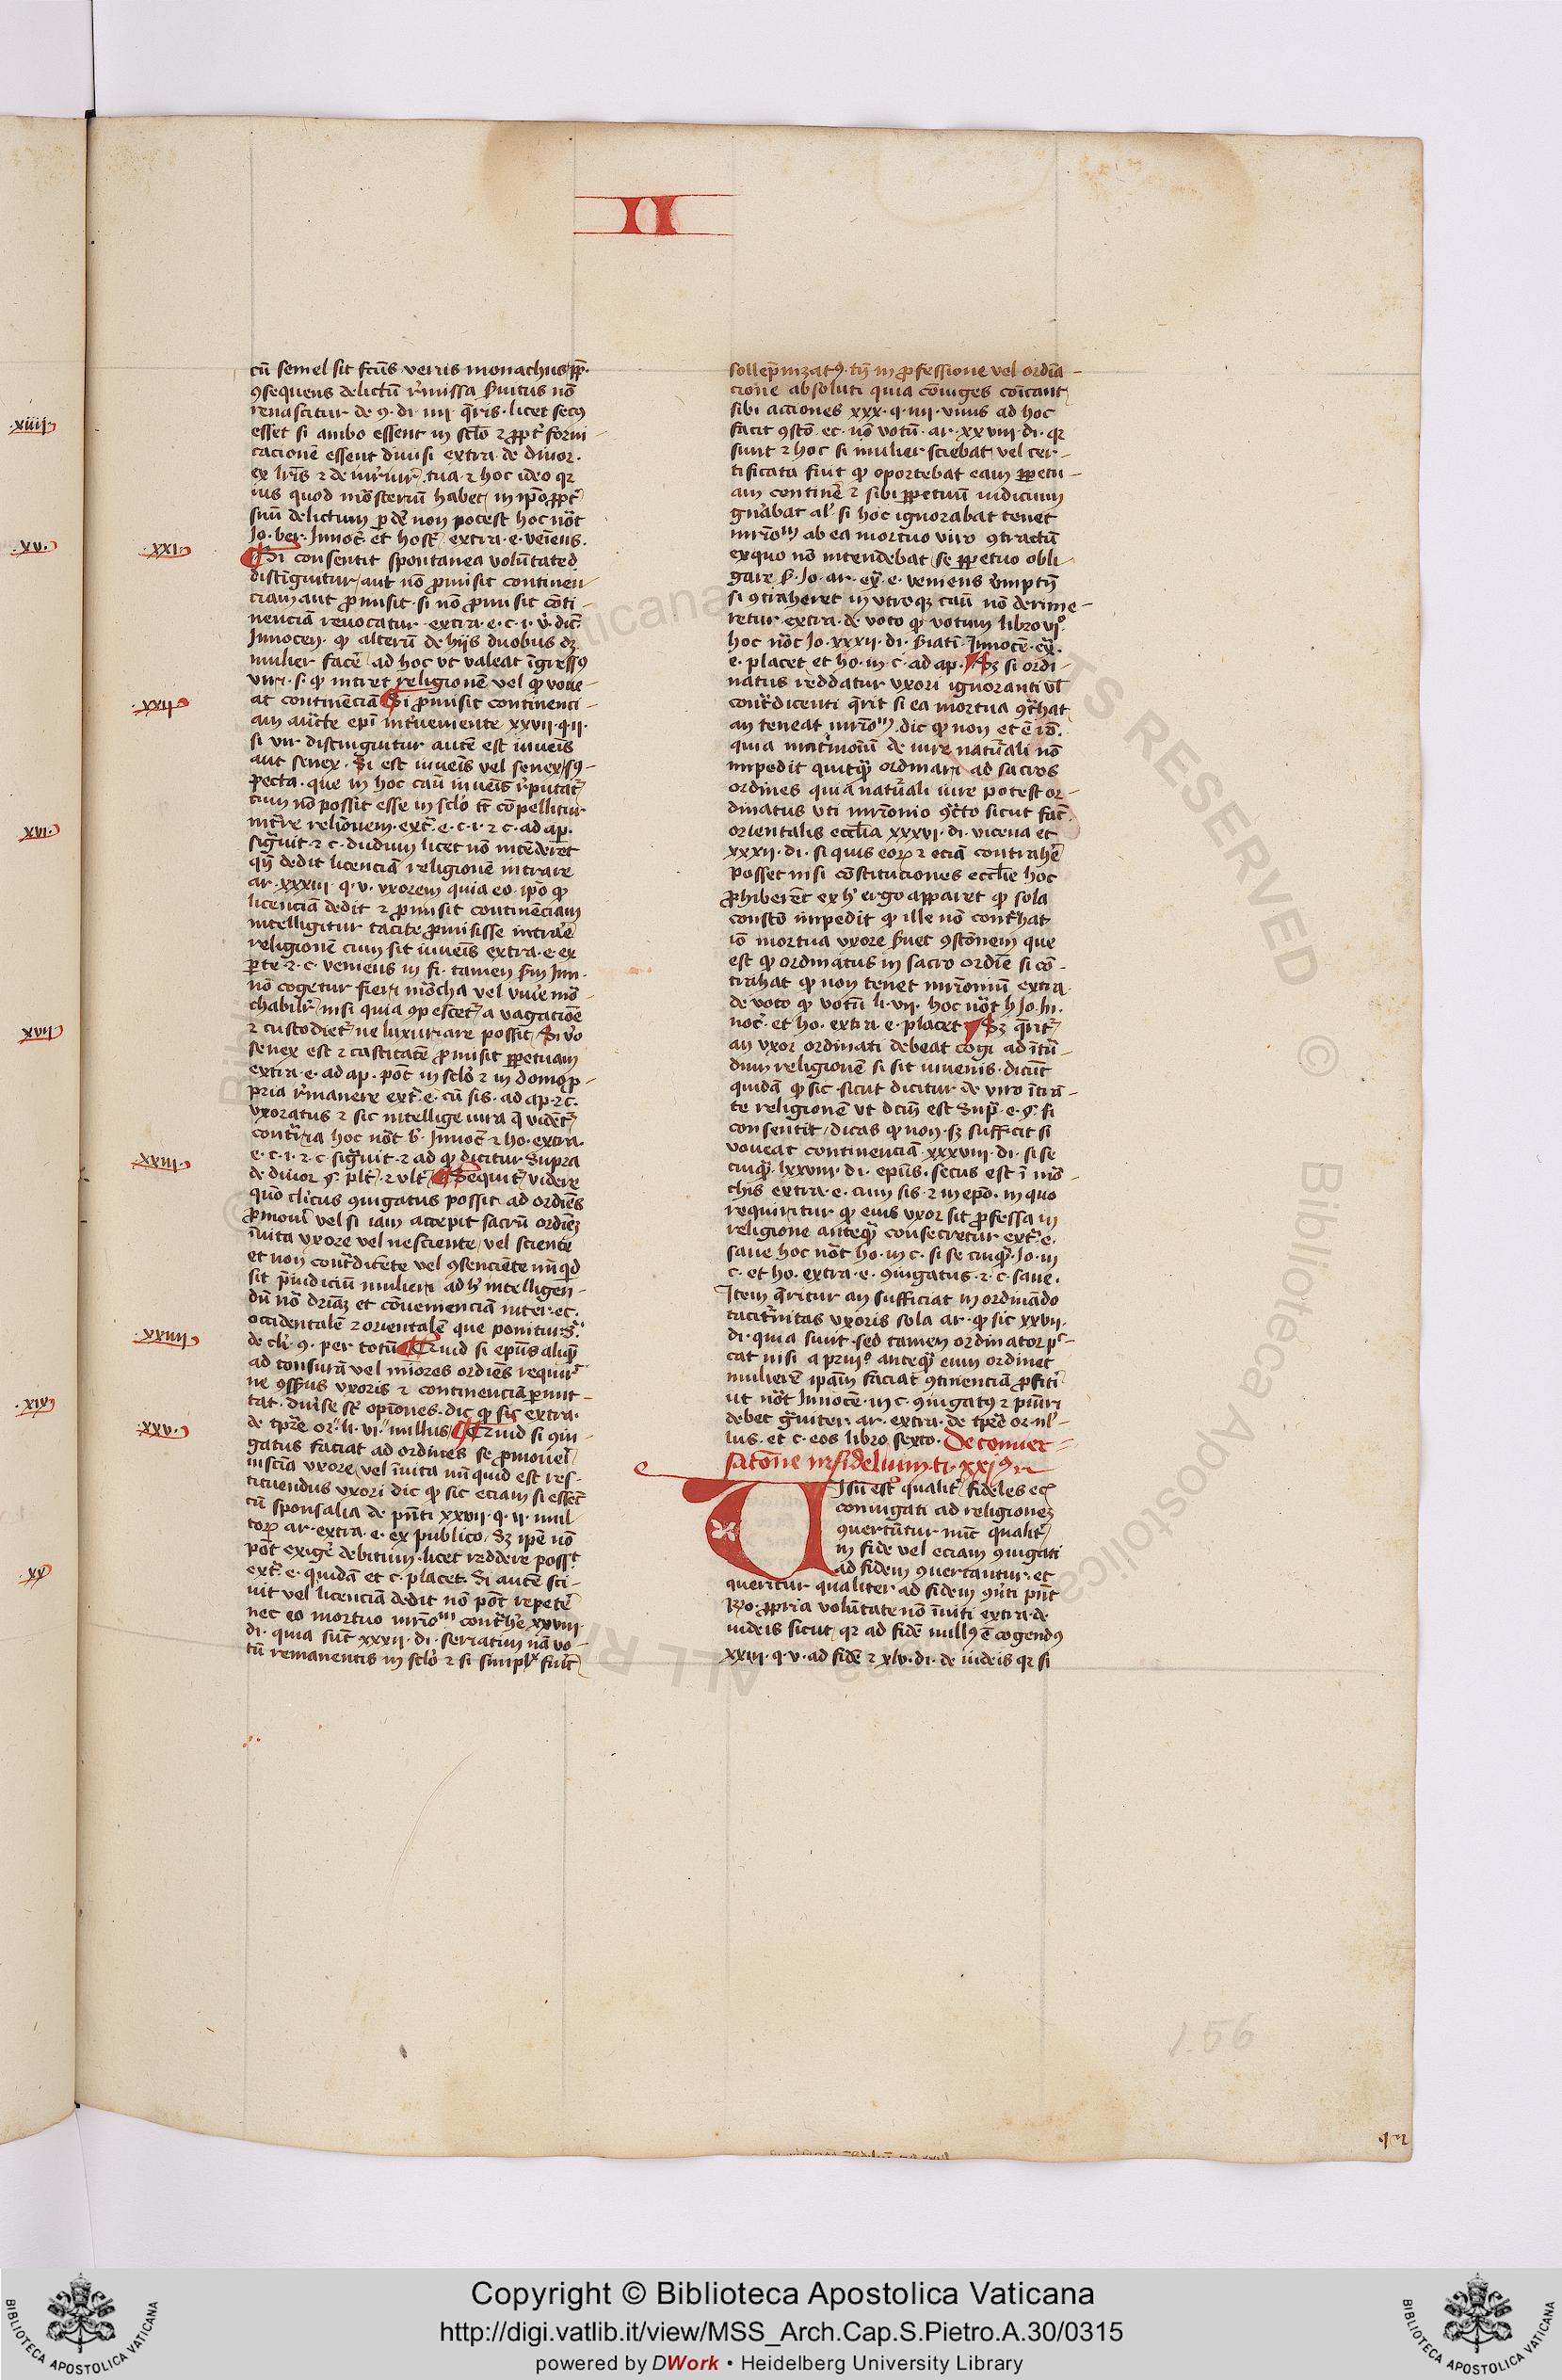 II
cū semel sit fcūs verris monachus ꝓp̄
ꝯsequens delictū r̄missa ẞuitus nō
renascitur de ꝯ. di. iiii. q̄ris. licet secꝯ
esset si ambo essent in sclō ꞇ ꝓpt̄ forni-
cacionē essent diuisi extra. de diuor.
ex lr̄is ꞇ de iur̄iur̄. tua. ꞇ hoc ideo qr
ius quod mōsteriū habet in ip̄o ꝓpt̄
suū delictum ꝑdē non potest hoc nōt
Jo. ber. Innoc̄. et host̄. extra. e. veiens.
.xxi.
Si consentit spontanea volūtate
distīguitur aut nō ꝓmisit continen-
ciam aut ꝓmisit. si nō ꝓmisit cōti-
nenciā reuocatur. extra. e. c. i. ꝟ. dic̄
Innocen. ꝙ alterū de hijs duobus dʒ
mulier facē ad hoc vt valeat īgressꝯ
viri. s. ꝙ intret religionē vel ꝙ voue-
.xxii.
at continēciā Si ꝓmisit continenci-
am auc̄te ep̄i int̄ueniente xxvii. q. ii.
si vir distinguitur autē est iuueīs
aut senex. Si est iuueīs vel senex sꝯ-
pecta. que in hoc cāu iuueīs r̄putat̄
cum nō possit esse in sclō tn̄ cōpellitur
int̄re reliōnem. ext̄. e. c. i. ꞇ c. ad ap̄.
sig̅uit. ꞇ c. dudum licet nō intēderet
qn̄ dedit licenciā religionē intrare
ar. xxxiii. q. v. vxorem quia eo. ip̄o ꝙ
licenciā dedit ꞇ ꝓmisit continēciam
intelligitur tacite ꝓmisisse intrare
religionē cum sit iuueīs extra. e. ex
ꝑte. ꞇ. c. veniens in fi. tamen scd̄m Inn.
nō cogetur fieri mōcha vel viue mō-
chabilr̄ nisi quia ꝯpescet̄ a vagacione
ꞇ custodiet̄ ne luxuriare possit. Si ꝟo
senex est ꞇ castitatē ꝓmisit ꝑpetuam
extra. e. ad ap. pōt in sclō ꞇ in domo ꝓ-
pria r̄manere ext̄. e. cū sis. ad ap. ꞇ c.
vxoratus ꞇ sic intellige iura q̄ vident̄
cont̄ria hoc nōt b̄. Innoc̄. ꞇ ho. extra.
.xxiii.
e. c. i. ꞇ. c. sig̅uit. ꞇ ad ꝙ dicitur supra
de diuor. §. pl̄t. ꞇ vlt̄. Sequit̄ videre
quō cl̄icus ꝯiugatus possit ad ordīes
ꝓmoui vel si iam accepit sacrū ordinē
īuita vxore vel nesciente vel sciente
et non cont̄dicēte vel ꝯsenciēte nūqd
sit p̄iudiciū mulieri ad h̄ intelligen-
dū nō dr̄iaʒ et cōuenienciā inter. ec.
occidentalē ꞇ orientalē que ponitur s̄.
.xxiiii.
de cl̄i. ꝯ. per totū Quid si ep̄us aliqʒ
ad tonsurā vel mīores ordīes requir̄
ne ꝯsēsus vxoris ꞇ continenciā ꝑmit-
tat. diūse st̄ opiniones. dic ꝙ sic extra.
.xxv.
de tp̄re or. li. vi. nullus Quid si ꝯiu-
gatus faciat ad ordines se ꝓmoueri
inscia vxore vel īuita nūquid est res-
tituendus vxori dic ꝙ sic eciam si essēt
cū sponsalia de pn̄ti xxvii. q. ii. mul
torꝝ ar. extra. e. ex publico. Sʒ ipē nō
pōt exigē debitum. licet reddere poss̄t
ext̄. e. quidā et c. placet. Si autē sci-
uit vel licenciā dedit nō pōt repetē
nec eo mortuo mr̄ioᵐ cont̄hē xxviii.
di. quia sūt xxxii. di. seriatim nā vo-
tū remanentis in sclō ꞇ si simplˣ fuit̄
sollēpnizatꝯ. tn̄ in ꝓfessione vel ordīa-
cione absoluti quia cōiuges cōicant
sibi acciones xxx. q. iiii. vnus ad hoc
facit ꝯstō. ec. nō votū. ar. xxviii. di. qr
sunt ꞇ hoc si mulier sciebat vel cer-
tificata fuit ꝙ oportebat eam ꝑpetu-
am continē ꞇ sibi ꝑpetuū iudicium
gn̄abat al̄. si hoc ignorabat tenet
mr̄ioᵐ ab ea mortuo viro ꝯtractū
exquo nō intendebat se ꝑpetuo obli-
gare s. Jo. ar. ex̄. e. veniens
si ꝯtraheret in vtroqʒ cāu nō derime-
retur extra. de voto ꝙ votum libro viº.
hoc nōt Jo. xxxii. di. Innocē. ex̄.
e. placet et ho. in. c. ad ap. Sʒ si ordi-
natus reddatur vxori ignoranti vl̄
cont̄dicenti q̄rit si ea mortua ꝯt̄hat
an teneat mr̄ioᵐ. dic ꝙ non et ē rō.
quia matrimoiū de iure natūali nō
impedit quītqʒ ordinari ad sacros
ordines quia natūali iure potest or-
dinatus vti mr̄ionio ꝯt̄cto sicut fac̄
orientalis eccl̄ia xxxvi. di. vicena et
xxxii. di. si quis eorꝝ ꞇ eciā contrahē
posset nisi cōstituciones eccl̄ie hoc
ꝓhiberēt ex h̄ ergo apparet ꝙ sola
constō impedit ꝙ ille nō cont̄hat
iō mortua vxore ẞuet ꝯstōnem que
est ꝙ ordinatus in sacro ordīe si cō-
trahat ꝙ non tenet mr̄ionium extra
de voto ꝙ votū li. vii. hoc nōt h̄ Jo. In.
noc̄. et ho. extra. e. placet Sʒ q̄rit̄
an vxor ordinati debeat cogi ad īt̄ū-
dum religionē si sit iuuenis. dicūt
quidā ꝙ sic. sicut dicitur de viro īt̄rā-
te religionē vt dc̄m est Sup̄. e. §. si
consentit dicas ꝙ non. sʒ sufficit si
voueat continenciā. xxxviii. di. si se
cūqʒ. lxxviii. di. ep̄us. secus est ī mō-
chis extra. e. cum sis. ꞇ in ep̄o. in quo
requiritur ꝙ eius vxor sit ꝓfessa in
religione anteqʒ consecretur ext̄. e.
sane hoc nōt ho. in c. si se cūqʒ. Jo. in
c. et ho. extra. e. ꝯiugatus. ꞇ. c. sane.
Item q̄ritur an sufficiat in ordinādo
tacit̄nitas vxoris sola ar. ꝙ sic xxvii.
di. quia sunt. sed tamen ordinator pc̄-
cat nisi a prīº anteqʒ eum ordinet
mulierē ipām faciat ꝯtinenciā ꝓfiti
ut nōt Innocē. in c. ꝯiugatꝯ ꞇ pūiri
debet g̅uiter. ar. extra. de tp̄e or. nl̄-
lus. et c. eos libro sexto. De conuer-
satōne infidelium. ti. xxiꝯ.
Uisū est qualit̄ fideles ec̄
coniugati ad religioneʒ
ꝯuertūtur nūc qualit̄
in fide vel eciam ꝯiugati
ad fidem ꝯuertantur. et
queritur qualiter ad fidem ꝯūti pn̄t
Rº. ꝓpria volūtate nō īuiti extra. de
iudeis sicut qr ad fidē nullꝯ ē cogendꝯ
xxiii. q. v. ad fidē ꞇ xlv. di. de iudeis qr si
.xiiii.
.xv.
.xvi.
.xix.
.xx.
156
Copyright © Biblioteca Apostolica Vaticana
http://digi.vatlib.it/view/MSS_Arch.Cap.S.Pietro.A.30/0315
powered by DWork • Heidelberg University Library
BIBLIOTECA APOSTOLICA VATICANA
BIBLIOTECA APOSTOLICA VATICANA